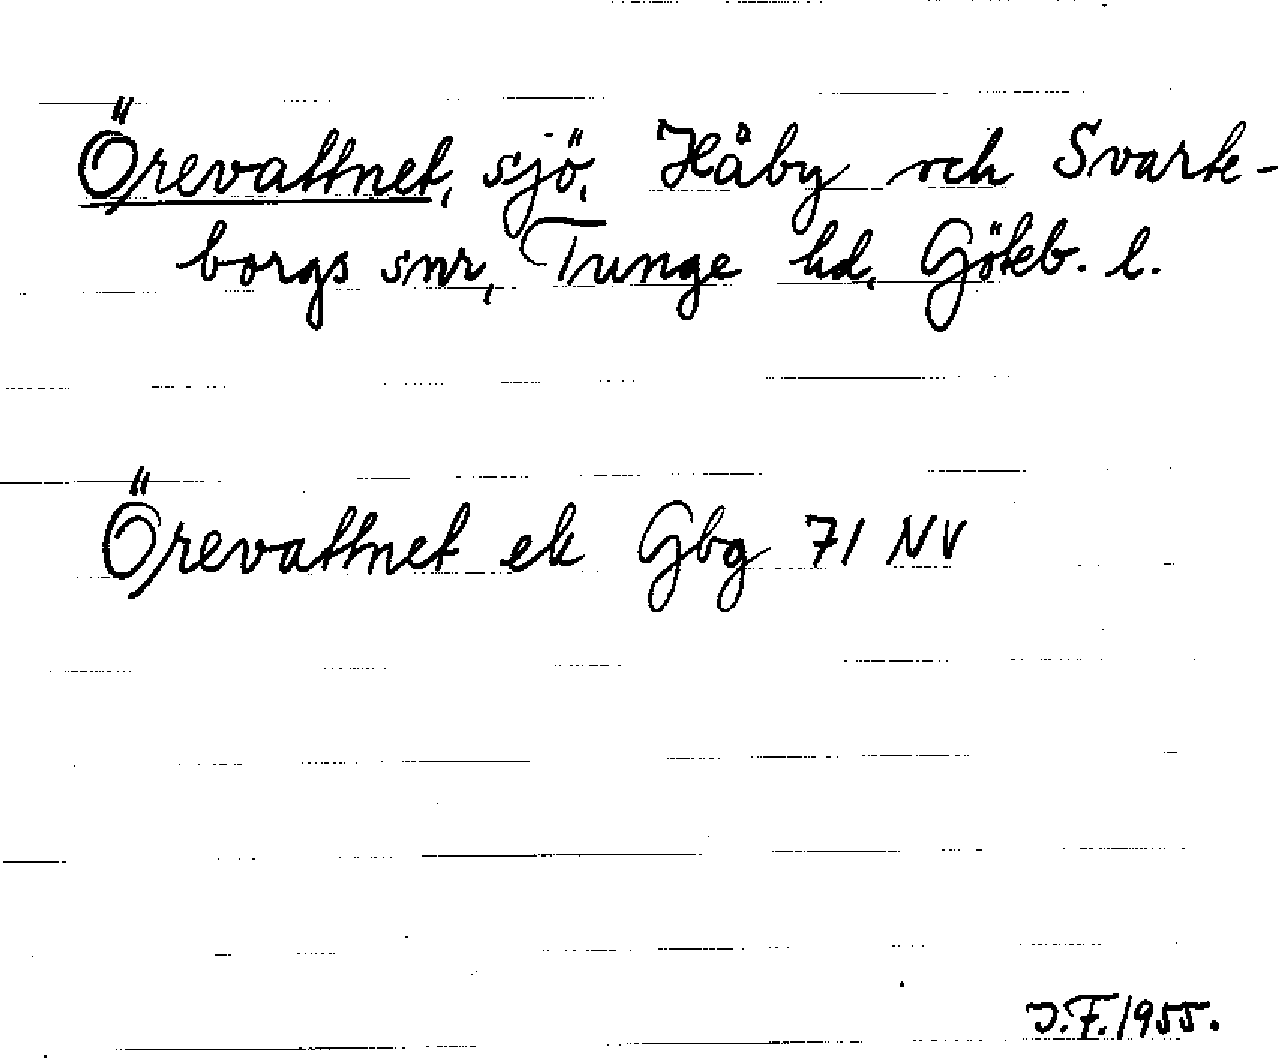 Örevattnet, sjö, Håby och Svarte-
borgs snr, Tunge hd, Göteb. l.
Örevattnet ek Gbg 71 NV
J.F. 1955.